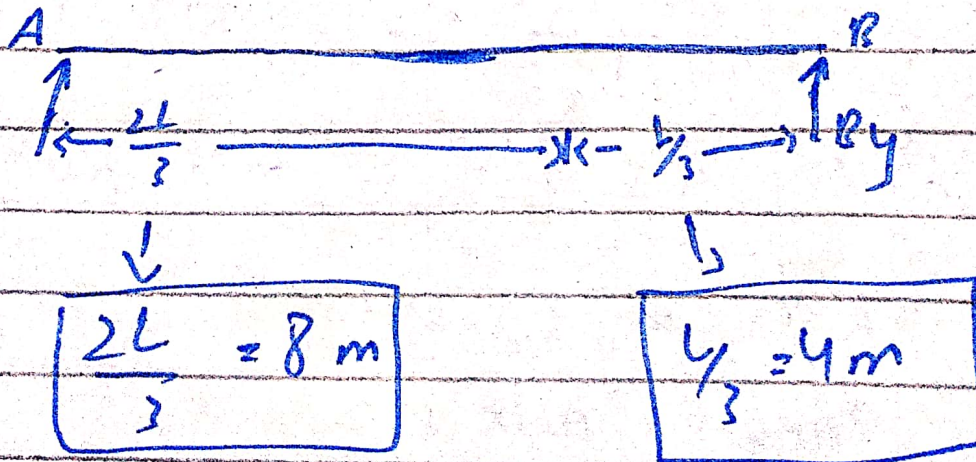 A B
2L/3 L/3 By
2L/3 = 8 m L/3 = 4 m